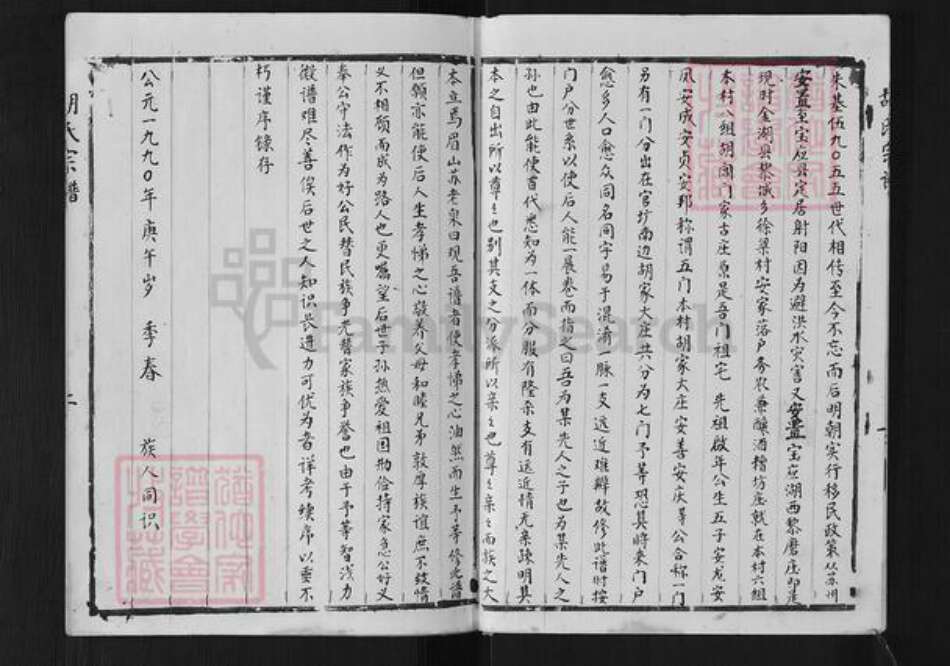 朱基伍九〇五五世代相传至今不忘而后明朝实行移民政策从苏州
安置至宝应县定居射阳因为避洪水灾害又安置宝应湖西黎磨庄即是
现时金湖县黎城乡徐梁村安家落户务农兼酿酒糟坊座就在本村六组
本村八组胡阁门家古庄原是吾门祖宅 先祖啟年公生五子安龙安
凤安成安贞安邦称谓五门本村胡家大庄安善安庆等公合称一门
另有一门分出在官圩南边胡家大庄共分为七门予等恐其将来门户
愈多人口愈众同名同字易于混淆一脉一支远近难辩故修此谱时按
门户分世系以使后人能一展卷而指之曰吾为某先人之子也为某先人之
孙也由此能使百代悉知为一体而分服有隆杀支有远近情无亲疎明其
本之自出所以尊尊也别其支之分派所以亲亲也尊尊亲亲而族之大
本立焉眉山苏老泉曰观吾谱者使孝悌之心油然而生予等修此谱
但愿亦能使后人生孝悌之心敬养父母和睦兄弟敦厚族谊庶不致情
义不相顾而成为路人也更嘱望后世子孙热爱祖国勤俭持家急公好义
奉公守法作为好公民替民族争光替家族争誉也由于予等智浅力
微谱难尽善俟后世之人知识长进力可优为者详考续序以垂不
朽谨序录存
公元一九九〇年 庚午岁 季春 族人同识
胡氏宗谱
二
FamilySearch